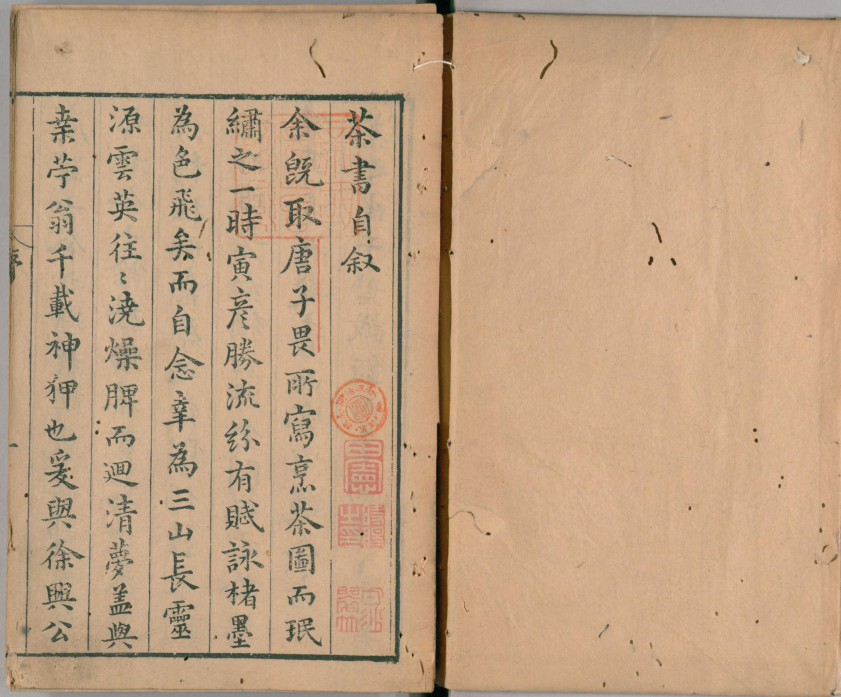 茶書自叙
余既取唐子畏所寫烹茶圖而珉
繡之一時寅彥勝流紛有賦詠楮墨
為色飛矣而自念幸為三山長靈
源雲英往〻澆燥脾而迴清夢盖與
桒苧翁千載神狎也爰與徐興公
序
一